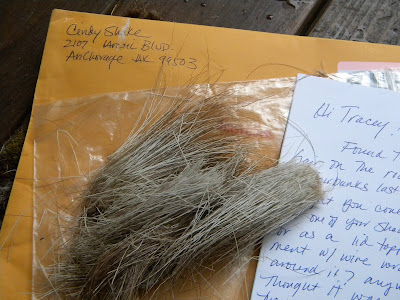 Cindy Shake
2107 BLVD.
Anchorage AK 99503
Hi Tracey!
Found T
hair on the ro
banks last
t you coul
on of your sha
or as a lid topp
ment w/ wire wra
around it? anyw
thought it wa